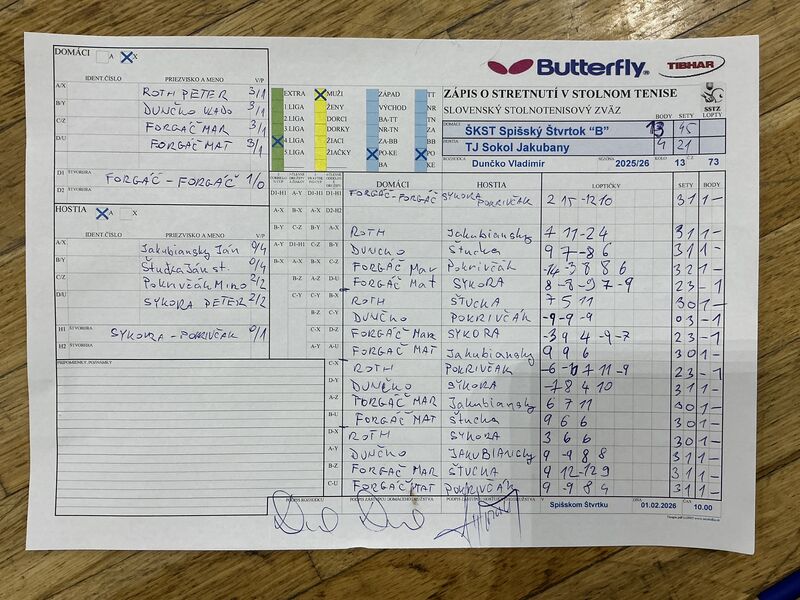 DOMÁCI A X
IDENT.ČÍSLO PRIEZVISKO A MENO V/P
A/X ROTH PETER 3/1
B/Y DUNČKO VLADO 3/1
C/Z FORGÁČ MAR 3/1
D/U FORGÁČ MAT 3/1
D1 ŠTVORHRA FORGÁČ - FORGÁČ 1/0
D2 ŠTVORHRA
HOSTIA A X
IDENT.ČÍSLO PRIEZVISKO A MENO V/P
A/X Jakubiansky Ján 0/4
B/Y Štucka Ján st. 0/4
C/Z Pokrivčák Miro 2/2
D/U SYKORA PETER 2/2
H1 ŠTVORHRA SYKORA - POKRIVČAK 0/1
H2 ŠTVORHRA
PRIPOMIENKY, POZNÁMKY
Butterfly
TIBHAR
EXTRA MUŽI ZÁPAD TT
1.LIGA ŽENY VÝCHOD NR
2.LIGA DORCI BA-TT TN
3.LIGA DORKY NR-TN ZA
4.LIGA ŽIACI ZA-BB BB
5.LIGA ŽIAČKY PO-KE PO
BA KE
ZÁPIS O STRETNUTÍ V STOLNOM TENISE
SLOVENSKÝ STOLNOTENISOVÝ ZVÄZ
SSTZ
BODY SETY LOPTY
DOMÁCI ŠKST Spišský Štvrtok "B" 13 45
HOSTIA TJ Sokol Jakubany 4 21
ROZHODCA Dunčko Vladimír SEZÓNA 2025/26 KOLO 13 73
DOMÁCI HOSTIA LOPTIČKY SETY BODY
FORGÁČ-FORGÁČ SYKORA POKRIVČAK 2 15 -12 10 3 1 1 -
ROTH Jakubiansky 7 11 -2 4 3 1 1 -
DUNCKO Štucka 9 7 -8 6 3 1 1 -
FORGÁČ Mar Pokrivčák -14 -3 8 8 6 3 2 1 -
FORGÁČ Mat SYKORA 8 -8 -9 7 -9 2 3 - 1
ROTH ŠTUCKA 7 5 11 3 0 1 -
DUNČKO POKRIVČÁK -9 -9 -9 0 3 - 1
FORGÁČ Mar SYKORA -3 9 4 -9 -7 2 3 - 1
FORGÁČ MAT Jakubiansky 9 9 6 3 0 1 -
ROTH POKRIVČAK 2 3 - 1
DUNČKO SÝKORA -7 8 4 10 3 1 1 -
FORGÁČ MAR Jakubiansky 6 7 11 3 0 1 -
FORGÁČ MAT Štucka 9 6 6 3 0 1 -
ROTH SYKORA 3 6 6 3 0 1 -
DUNČKO JAKUBIANSKY 9 -9 8 8 3 1 1 -
FORGÁČ MAR ŠTUCKA 9 12 -12 9 3 1 1 -
FORGÁČ MAT POKRIVČÁK 9 -9 8 4 3 1 1 -
PODPIS ROZHODCU PODPIS ZÁSTUPCU DOMÁCEHO DRUŽSTVA V Spišskom Štvrtku DŇA 01.02.2026 ČAS 10.00